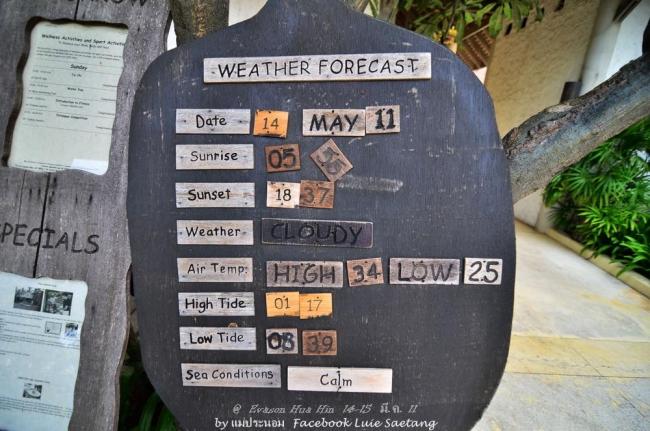 Wellness Activities and Sport Activities
Sunday
PECIALS
WEATHER FORECAST
Date 14 MAY 11
Sunrise 05 55
Sunset 18 37
Weather CLOUDY
Air Temp: HIGH 34 LOW 25
High Tide 01 17
Low Tide 08 39
Sea Conditions Calm
@ Evason Hua Hin 14-15 มี.ค. 11
by แม่ประนอม Facebook Luie Saetang